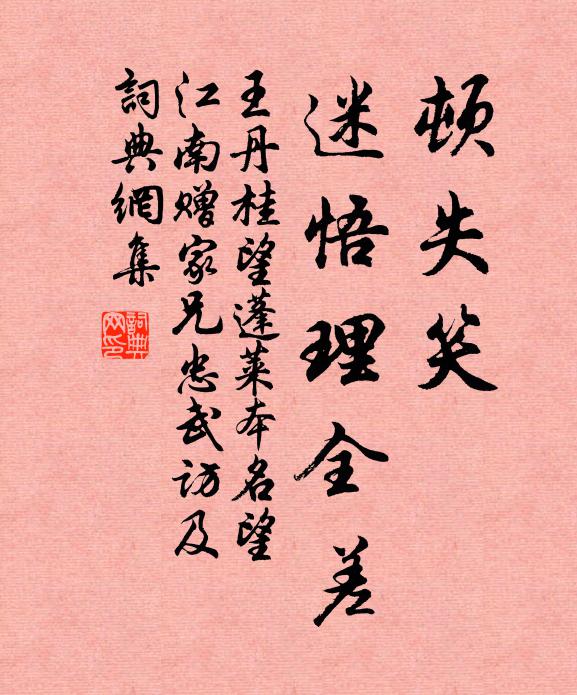 顿失笑
迷悟理全差
王丹桂望蓬莱本名望
江南赠家兄忠武访及
詞典網集
詞典
网印